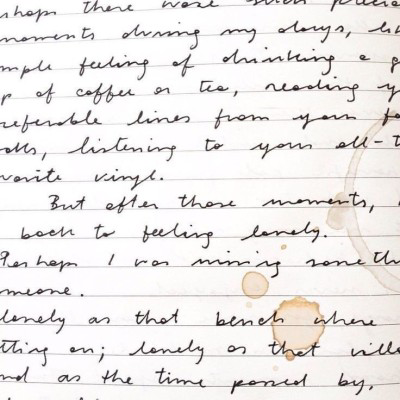 there were such
moments during my days,
feeling of drinking a
of coffee or tea, reading
lines from your
listening to your all-t
vorite vinyl.
But after those moments,
back to feeling lonely.
Perhaps I was missing someth
meone.
lonely as that bench where
tting on; lonely as that villa
nd as the time passed by,